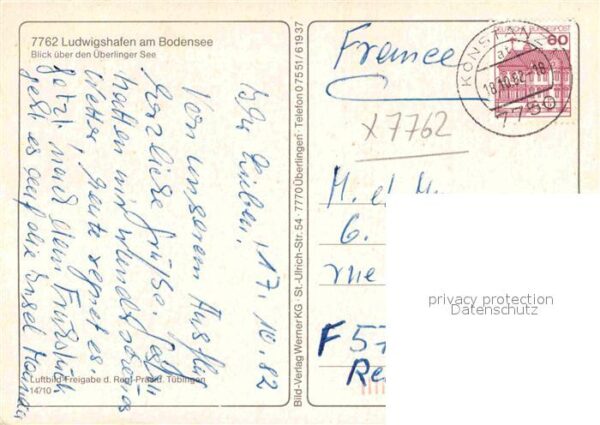 7762 Ludwigshafen am Bodensee
Blick über den Überlinger See
17.10.82
Ihr Lieben!
Von unserem Ausflug
herzliche Grüße.
hatten wir wunderbares
Wetter, heute regnet es.
Jetzt nach dem Frühstück
geht es auf die Insel Mainau
Luftbild-Freigabe d. Reg.-Präs. Tübingen
14/10
Bild-Verlag Werner KG · St.-Ulrich-Str. 54 · 7770 Überlingen · Telefon 07551/61937
France
x7762
KONSTANZ
18.10.82-18
7750
DEUTSCHE BUNDESPOST
60
M. et M
6.
rue
F 57
Re
privacy protection
Datenschutz